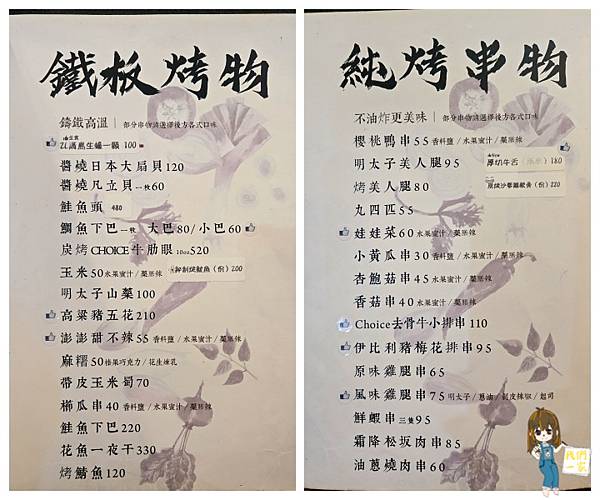 鐵板烤物
鑄鐵高溫｜部分串物請選擇後方各式口味
廣島生蠔一顆 100
醬燒日本大扇貝120
醬燒凡立貝一枚60
鮭魚頭 480
鯛魚下巴一枚 大巴80/小巴60
炭烤CHOICE牛肋眼10oz520
玉米50水果蜜汁/藥膳辣
(份) 200
明太子山藥100
高粱豬五花210
澎澎甜不辣55香料鹽/水果蜜汁/藥膳辣
麻糬50榛果巧克力/花生煉乳
帶皮玉米筍70
櫛瓜串40香料鹽/水果蜜汁/藥膳辣
鮭魚下巴220
花魚一夜干330
烤鯖魚120
純烤串物
不油炸更美味｜部分串物請選擇後方各式口味
櫻桃鴨串55香料鹽/水果蜜汁/藥膳辣
明太子美人腿95
厚切牛舌 180
烤美人腿80
(份) 220
丸四匹55
娃娃菜60水果蜜汁/藥膳辣
小黃瓜串30香料鹽/水果蜜汁
杏鮑菇串45水果蜜汁/藥膳辣
香菇串40水果蜜汁/藥膳辣
Choice去骨牛小排串110
伊比利豬梅花排串95
原味雞腿串65
風味雞腿串75明太子/蔥油/剝皮辣椒/起司
鮮蝦串三隻95
霜降松坂肉串85
油蔥燒肉串60
我們一家